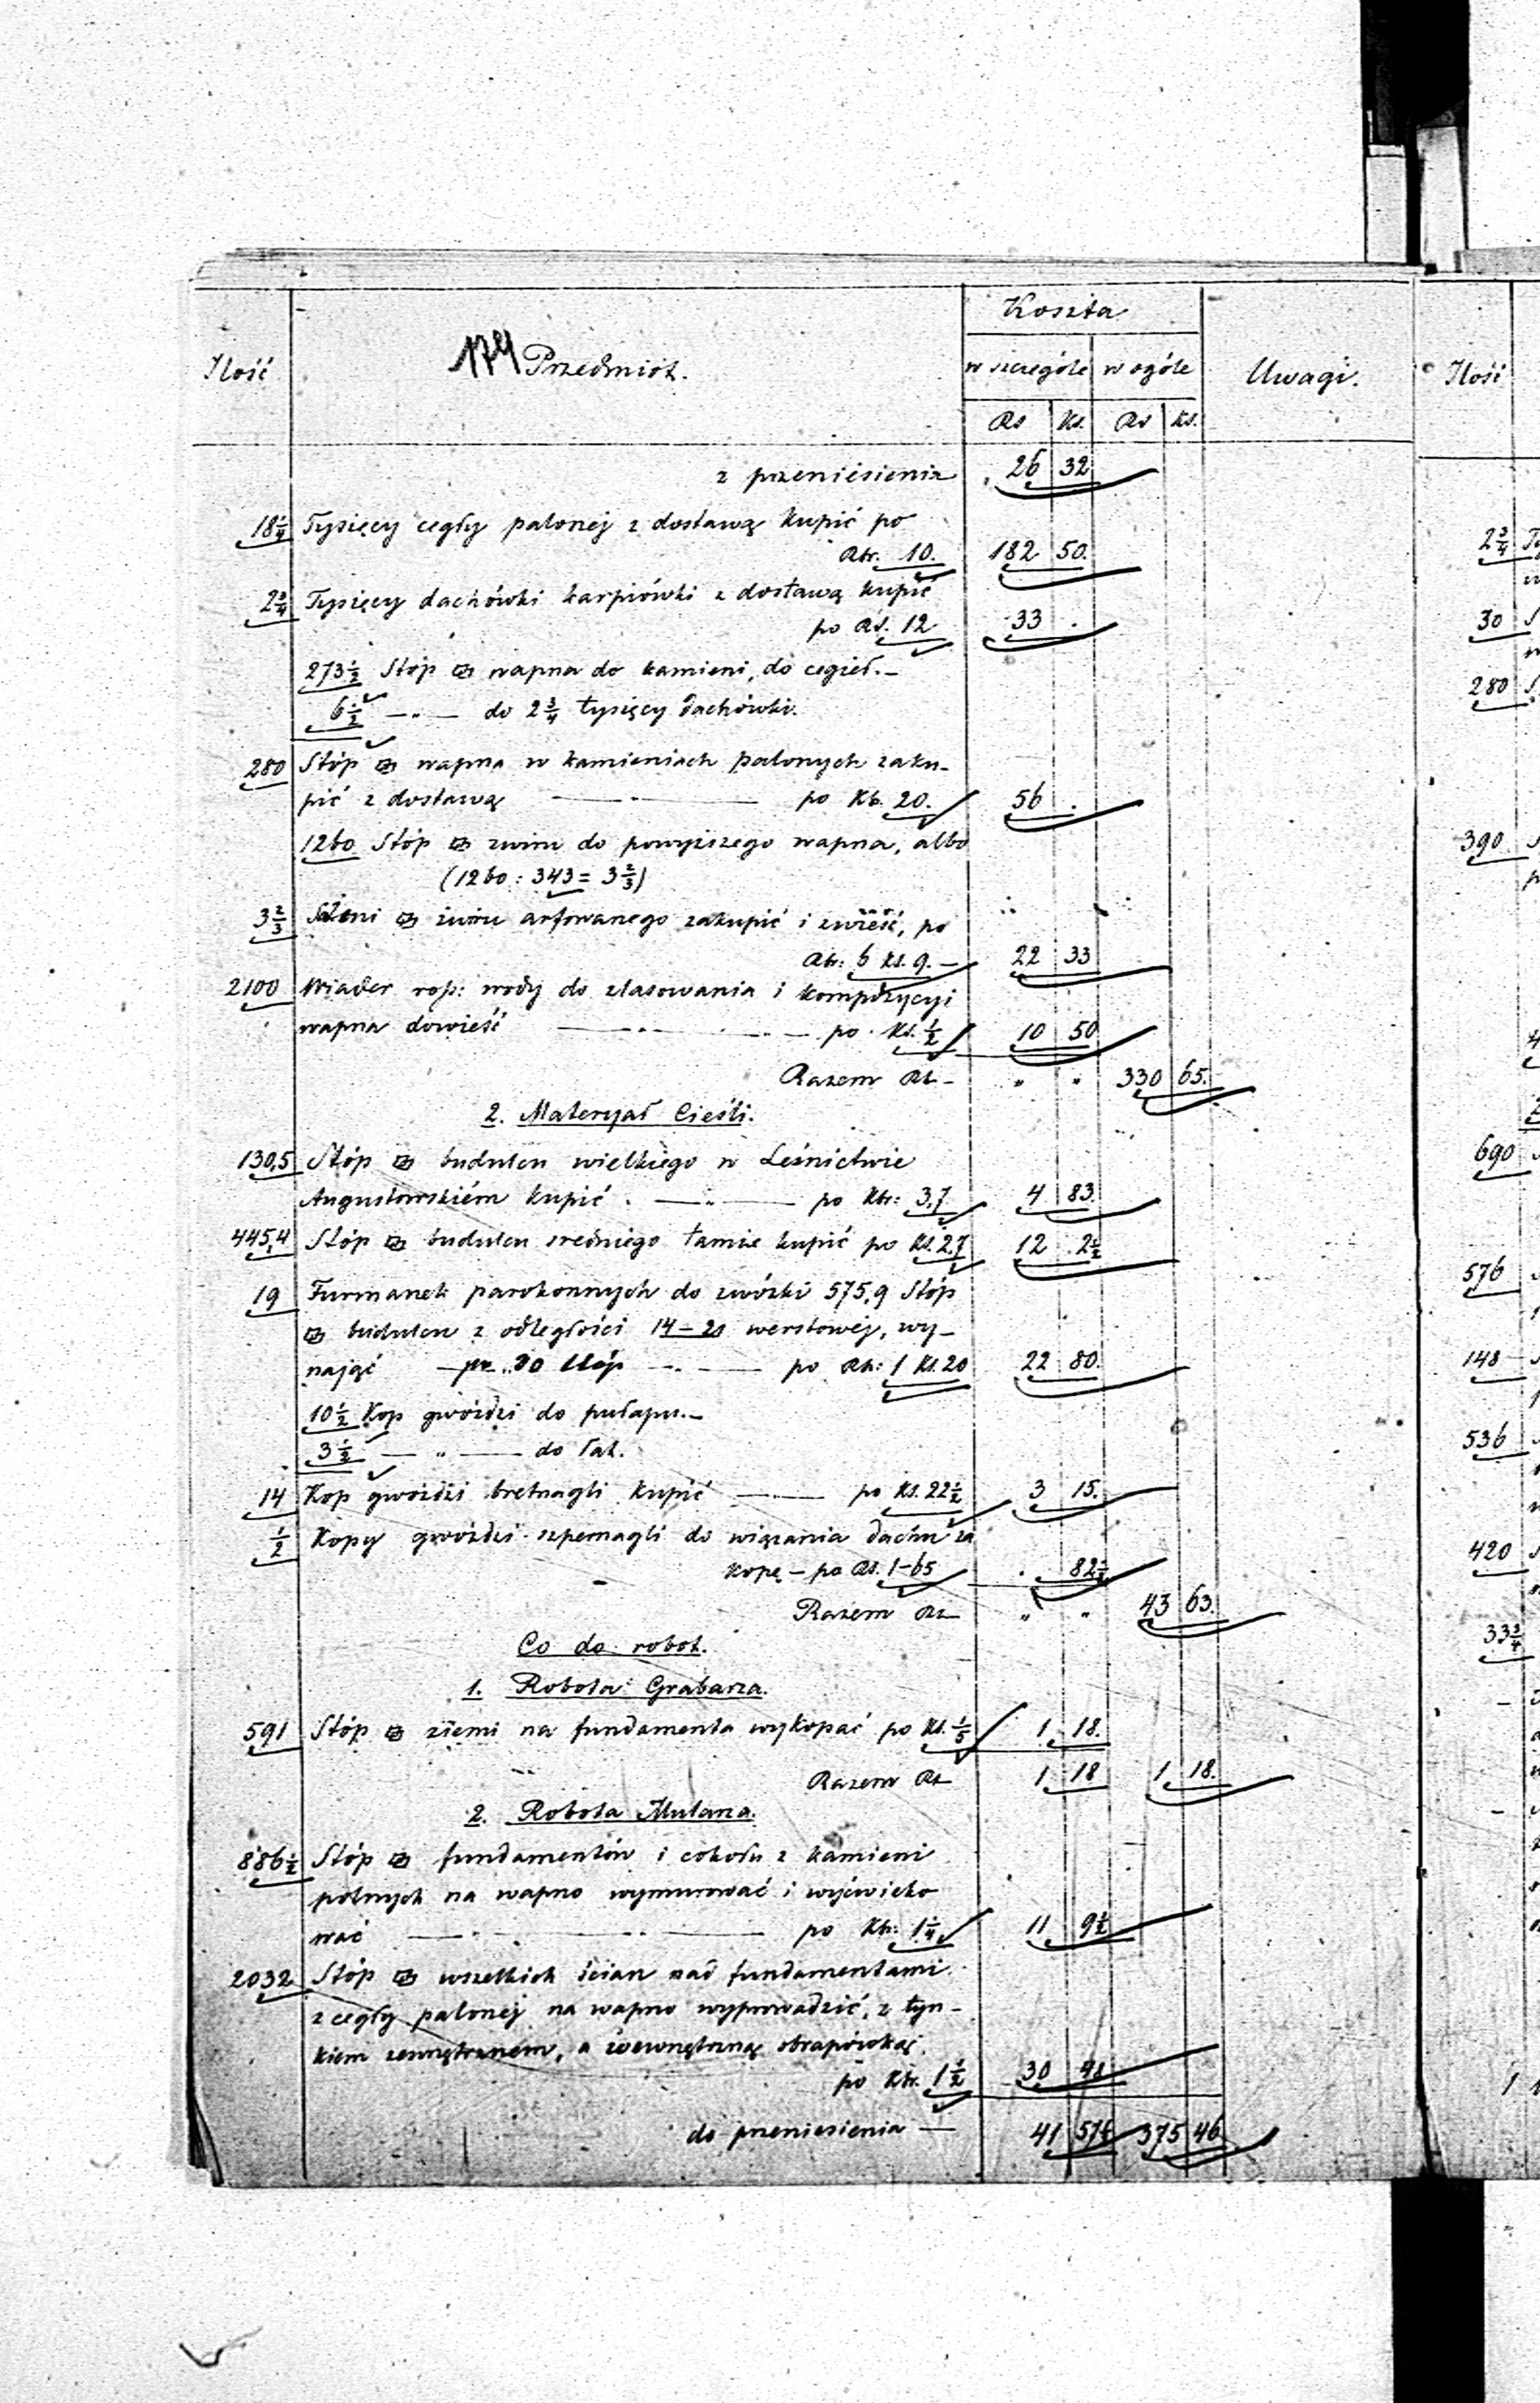 Koszta
Ilość 174 Przedmiot. w szczególe w ogóle Uwagi. Ilość
Rs Ks. Rs Ks.
z przeniesienia 26 32
18 1/4 Tysięcy cegły palonej z dostawą kupić po
Rbr. 10. 182 50.
2 3/4 Tysięcy dachówki karpiówki z dostawą kupić
po Rs. 12 33 .
273 1/2 Stóp wapna do kamieni, do cegieł.–
6 1/2 — „ — do 2 3/4 tysięcy dachówki.
280 Stóp wapna w kamieniach palonych zaku-
pić z dostawą — „ — po Kb. 20. 56 .
1260 Stóp żwiru do powyższego wapna, albo
(1260 : 343 = 3 2/3)
3 2/3 Sążni żwiru arfowanego zakupić i zwieść, po
Rbr: 6 Ks. 9. — 22 33
2100 Wiader ros: wody do zlasowania i kompozycyi
wapna dowieść — „ — po Ks. 1/2 10 50
Razem Rs – „ „ 330 65.
2. Materyał Cieśli.
130,5 Stóp budulcu wielkiego w Leśnictwie
Augustowskiém kupić . — „ — po Kbr: 3,7 4 83.
445,4 Stóp budulcu średniego tamże kupić po Ks. 2,7 12 2 1/2
19 Furmanek parokonnych do zwózki 575,9 Stóp
budulcu z odległości 14–21 werstowej, wy-
nająć — po 30 stóp — „ — po Rbr: 1 Ks. 20 22 80.
10 1/2 Kop gwoździ do pułapu.–
3 1/2 — „ — do łat.
14 Kop gwoździ bretnagli kupić — po Ks. 22 1/2 3 15.
1/2 Kopy gwoździ szpernagli do wiązania dachu za
kopę – po Rs. 1–65 . 82 1/2
Razem Rs — „ „ 43 63.
Co do robot.
1. Robota Grabarza.
591 Stóp ziemi na fundamenta wykopać po Ks. 1/5 1 18.
Razem Rs 1 18 1 18.
2. Robota Mularza.
886 1/2 Stóp fundamentów i cokołu z kamieni
polnych na wapno wymurować i wyćwieko
wać — „ — po Kbr: 1 1/4 11 9 1/2
2032 Stóp wszelkich ścian nad fundamentami
z cegły palonej na wapno wyprowadzić, z tyn-
kiem zewnętrzném, a wewnętrzną obrapówką.
po Kbr. 1 1/2 30 48
do przeniesienia — 41 57 1/2 375 46
2 3/4
30
280
390
690
576
148
536
420
33 3/4